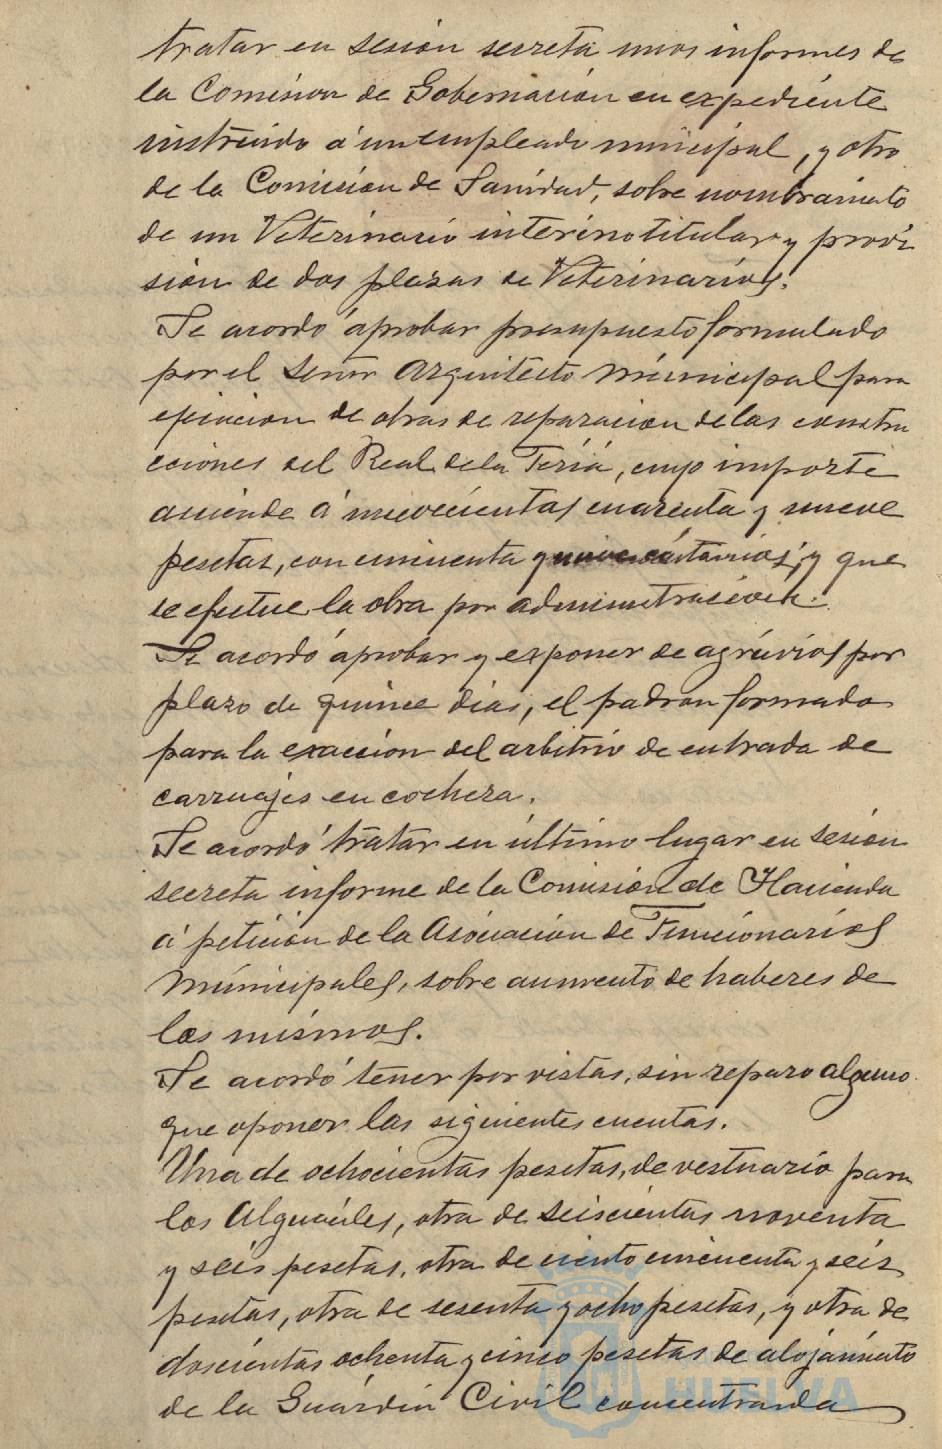 tratar en sesión secreta unos informes de
la Comisión de Gobernación en expediente
instruido á un empleado municipal, y otro
de la Comisión de Sanidad, sobre nombramiento
de un Veterinario interino titular y provi
sión de dos plazas de Veterinarios.
Se acordó aprobar presupuesto formulado
por el Señor Arquitecto Municipal para
ejecucion de obras de reparacion de las constru
cciones del Real de la Feria, cuyo importe
asciende á nuevecientas cuarenta y nueve
pesetas, con cincuenta y nueve céntimos, y que
se efectue la obra por administración.
Se acordó aprobar y exponer de agravios por
plazo de quince dias, el padron formado
para la exaccion del arbitrio de entrada de
carruajes en cochera.
Se acordó tratar en último lugar en sesión
secreta informe de la Comisión de Hacienda
á petición de la Asociación de Funcionarios
Municipales, sobre aumento de haberes de
los mismos.
Se acordó tener por vistas, sin reparo alguno
que oponer las siguientes cuentas.
Una de ochocientas pesetas, de vestuario para
los Alguaciles, otra de seiscientas noventa
y seis pesetas, otra de ciento cincuenta y seis
pesetas, otra de sesenta y ocho pesetas, y otra de
doscientas ochenta y cinco pesetas de alojamiento
de la Guardia Civil concentrada
HUELVA